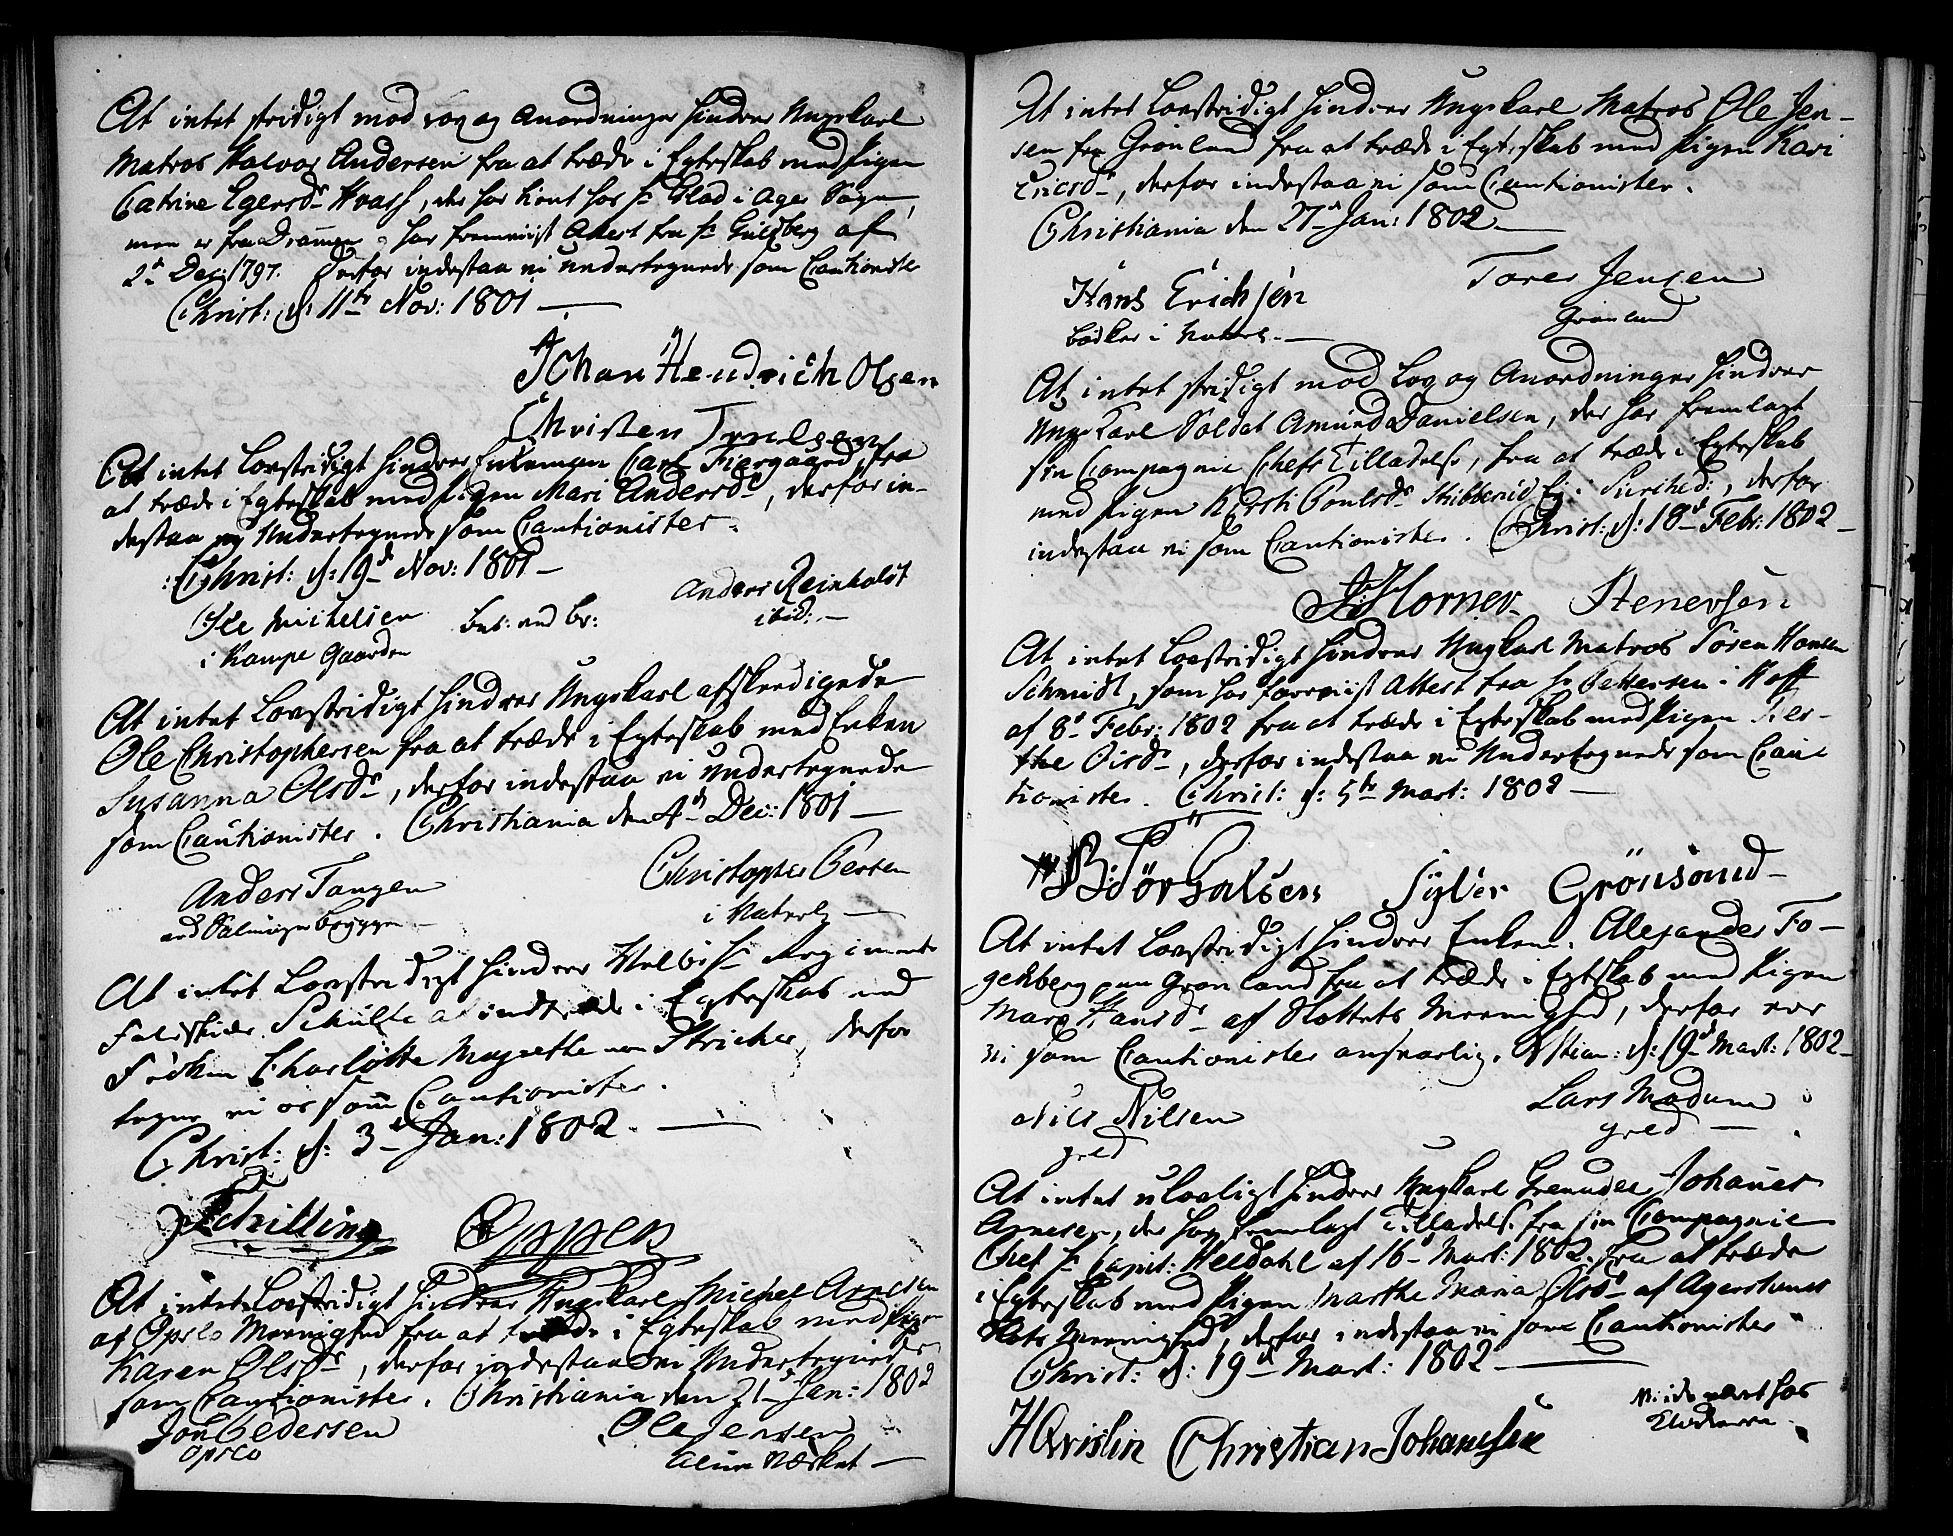 At intet stridigt mod Lov og Anordninger hindrer Ungkarl
Matros Halvor Andersen fra at træde i Egteskab med Pigen
Catrine Egersdr Hvass, der har tient hos Hr Glad i Ager Sogn,
men er fra Dramen, har fremviist Attest fra Hr Guldberg af
2d Dec: 1797. Derfor indestaa vi undertegnede som Cautionister
Christ: d: 11te Nov: 1801
Johan Hendrich Olsen
Christen
At intet Lovstridigt hindrer Enkeman Carl Fiergaard fra
at træde i Egteskab med Pigen Mari Andersdr, derfor in-
destaa vi Undertegnede som Cautionister.
Christ: d: 19d Nov: 1801
Ole Michelsen
i Kampe Gaarden
Anders Reinholdt
ibid:
At intet Lovstridigt hindrer Ungkarl afskeedigede
Ole Christophersen fra at træde i Egteskab med Enken
Susanna Olsdr, derfor indestaa vi Undertegnede
som Cautionister. Christiania den 4d Dec: 1801
Anders Tangen
ved Bryggen
Christopher Persen
i Vaterl
At intet Lovstridigt hindrer Regiments
Feltskiær Schulte at indtræde i Egteskab med
Frøken Charlotte Magrethe von Stricker, derfor
tegner vi os som Cautionister.
Christ: d: 3d Jan: 1802
Schilling Oppen
At intet Lovstridigt hindrer Ungkarl Michel Arnesen
af Opslo Meenighed fra at træde i Egteskab med Pigen
Karen Olsdr, derfor indestaa vi Undertegnede
som Cautionister. Christiania den 21 Jan: 1802
Jon Pedersen
Opslo
Ole Jensen
Værket
At intet Lovstridigt hindrer Ungkarl Matros Ole Jen-
sen fra Grønland fra at træde i Egteskab med Pigen Kari
Ericsdr, derfor indestaa vi som Cautionister.
Christiania den 27d Jan: 1802
Hans Erichsen
bødker i Vaterl.
Tores Jensen
Grønland
At intet stridigt mod Lov og Anordninger hindrer
Ungkarl Soldat Amund Danielsen, der har fremlagt
sin Compagnie Chefs Tilladelse, fra at træde i Egteskab
med Pigen Kirsti Poulsdr , derfor
indestaa vi som Cautionister. Christ: d: 18d Febr: 1802
Horner Stenersen
At intet Lovstridigt hindrer Ungkarl Matros Søren Hansen
Schmidt, som har foreviist Attest fra Hr Pettersen i Hoff
af 8d Febr: 1802 fra at træde i Egteskab med Pigen Ker-
sthe Oisdr, derfor indestaa vi Undertegnede som Cau-
tionister. Christ: d: 5te Mart: 1802
B: Tørgalsen Syver Grönsund
At intet Lovstridigt hindrer Enkem. Alexander Fo-
gehberg paa Grønland fra at træde i Egtskab med Pigen
Mare Hansdr af Slottets Meenighed, derfor ere
vi som Cautionister ansvarlig. Xstian: d: 19d Mart: 1802
Nils Nilsen
Lars Modum
At intet ulovligt hindrer Ungkarl Grenadeer Johanes
Arnesen, der har fremlagt Tilladelse fra sin Compagnie
Chef Hr Capit: Heidahl af 16d Mart: 1802. fra at træde
i Egteskab med Pigen Marthe Maria Olsdr af Agershuus
Slots Meenighed, derfor indestaa vi som Cautionister
Christ: d: 19d Mart: 1802
H Qvislin Christian Johannsen